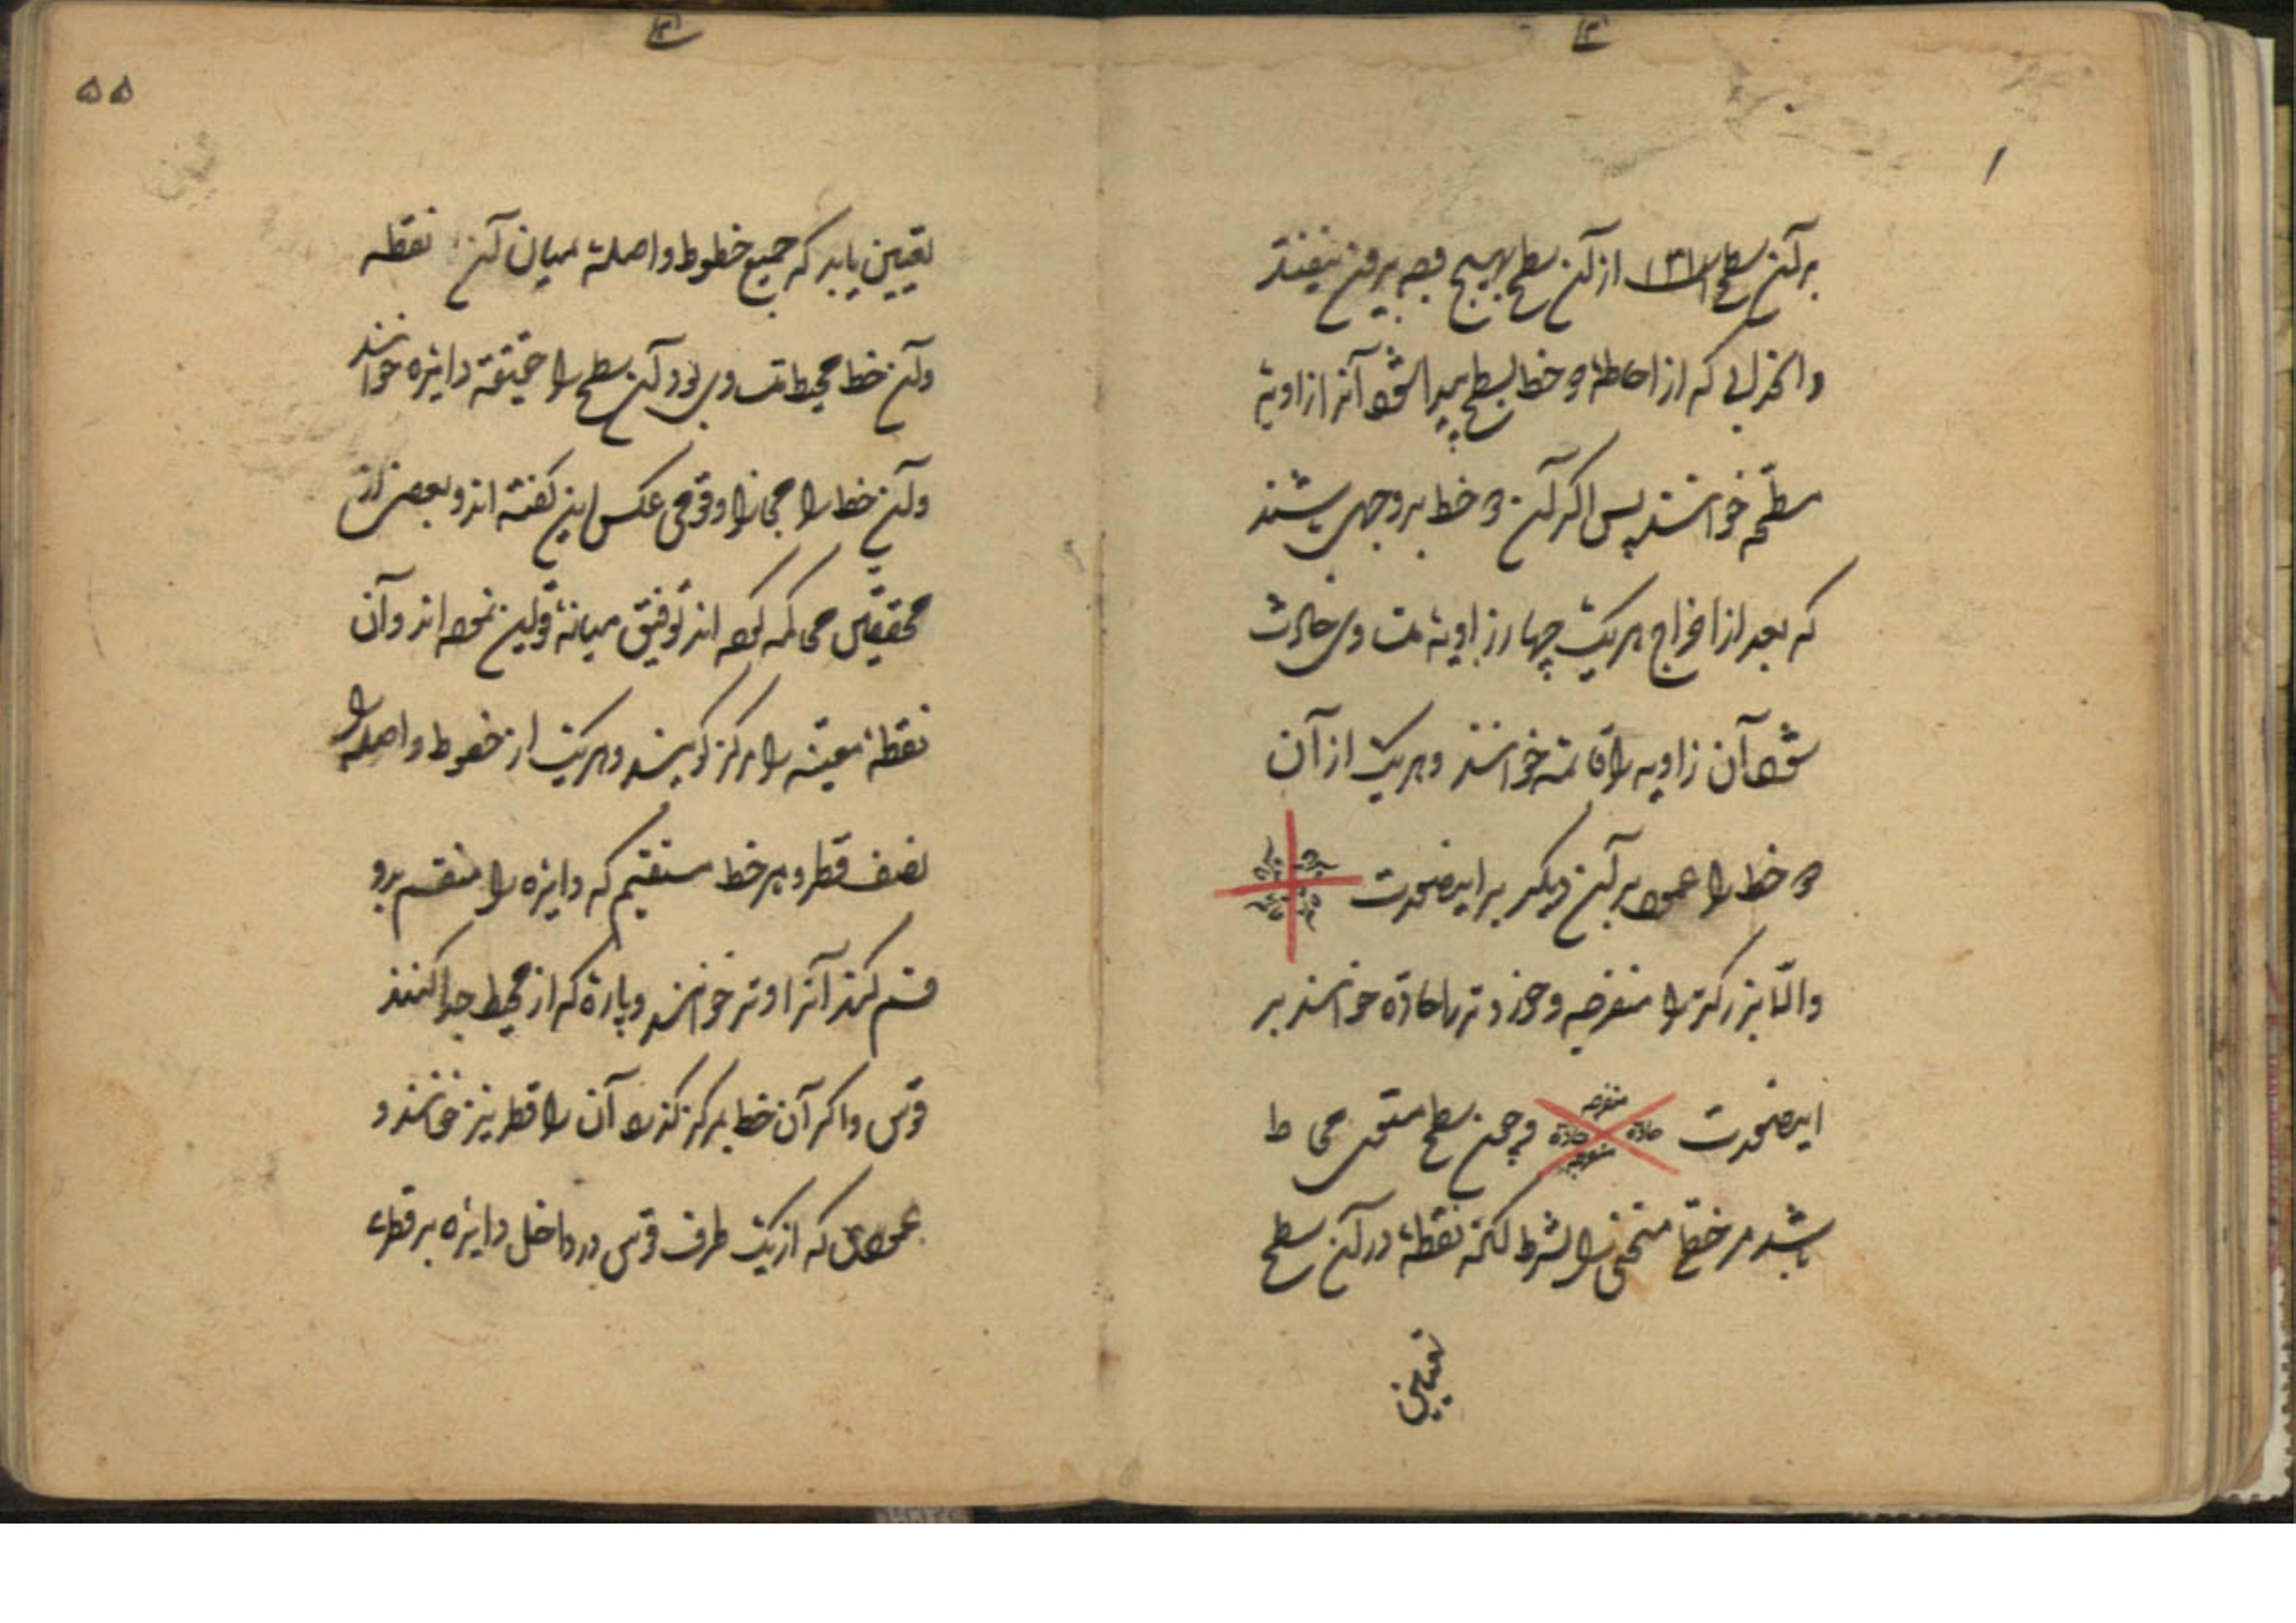 بر آن سطح از آن سطح بهیچ وجه بیرون نیفتد
و انحدابی که از احاطهٔ دو خط بسطح پیدا شود آنرا زاویهٔ
مسطحه خوانند پس اگر آن دو خط بر وجهی باشند
که بعد از اخراج هر یک چهار زاویهٔ متساوی حادث
شود آن زاویه را قائمه خوانند و هر یک از آن
دو خط را عمود بر آن دیگر بر اینصورت
قائمه قائمه
قائمه قائمه
و الّا بزرگتر را منفرجه و خوردتر را حادّه خوانند بر
اینصورت منفرجه حاده حاده منفرجه و چون سطح مستوی محاط
باشد مر خطی منحنی را بشرط آنکه نقطهٔ در آن سطح
تعیین
۵۵
تعیین یابد که جمیع خطوط واصلهٔ میان آن نقطه
و آن خط محیط متساوی بود آن سطح را حقیقة دایره خوانند
و آن خط را مجازا و قومی عکس این گفته اند و بعضی از
محققین محاکمه کرده اند توفیق میانهٔ قولین نموده اند و آن
نقطهٔ معینه را مرکز گویند و هر یک از خطوط واصله را
نصف قطر و هر خط مستقیم که دایره را منقسم بدو
قسم کند آنرا وتر خوانند و پارهٔ که از محیط جدا کنند
قوس و اگر آن خط بمرکز گذرد آن را قطر نیز خوانند و
عمودی که از یک طرف قوس در داخل دایره بر قطری